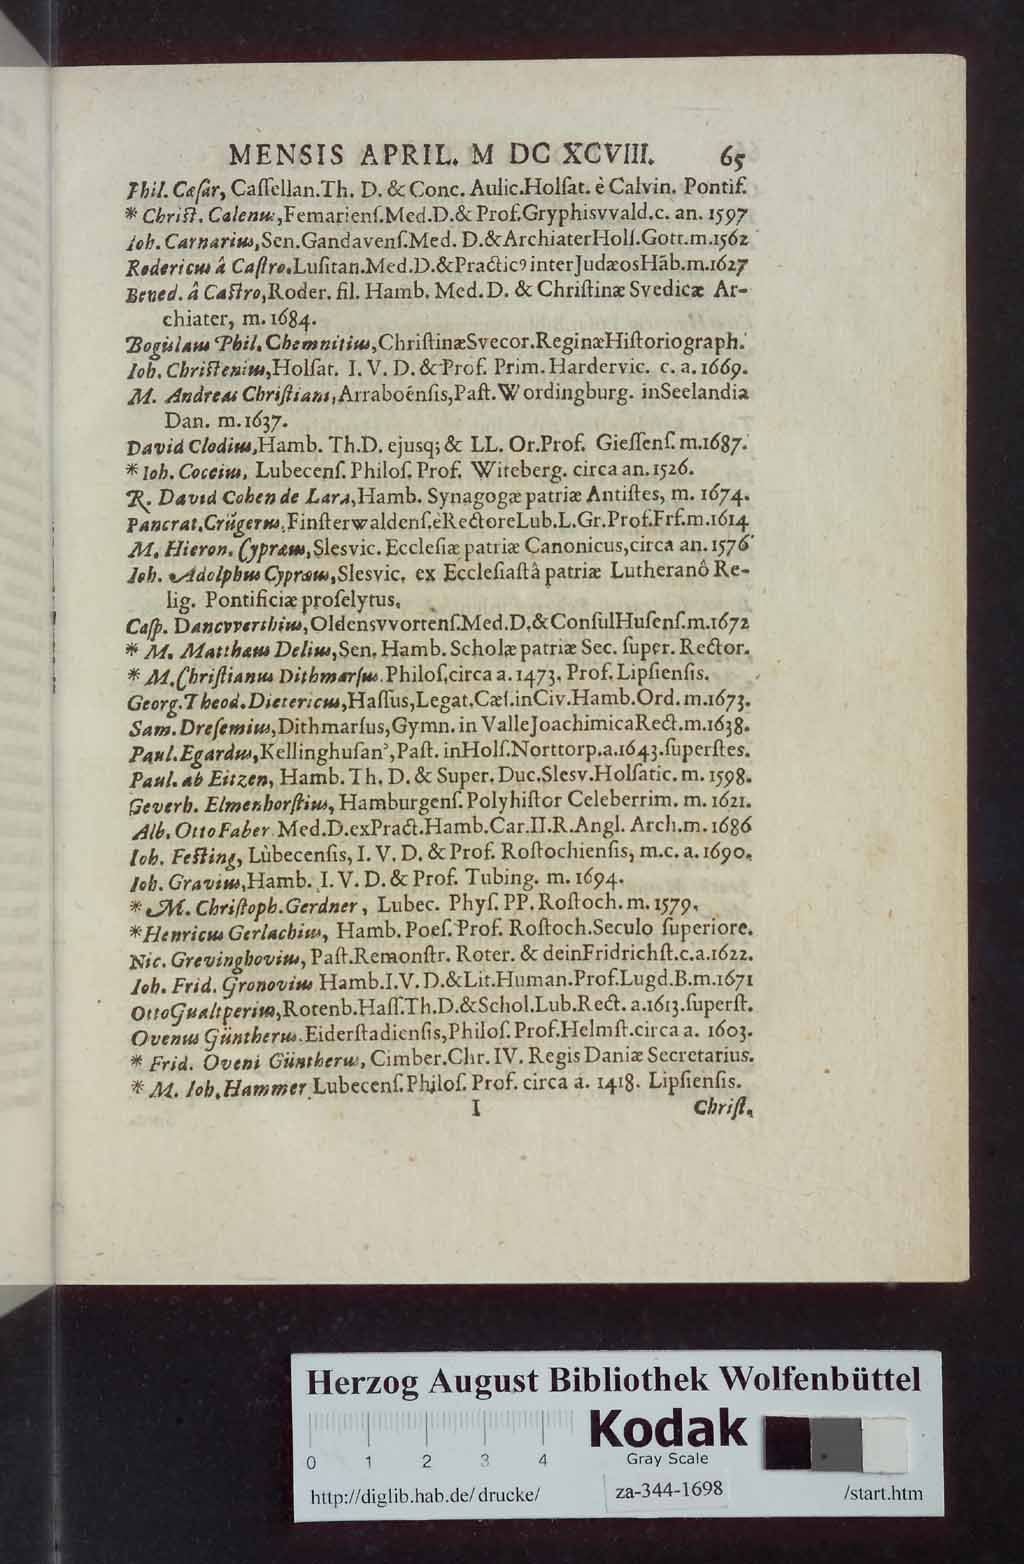 MENSIS APRIL. M DC XCVIII. 65
Phil. Cæſar, Caſſellan.Th. D. & Conc. Aulic.Holſat. è Calvin. Pontif.
* Chriſt. Calenus,Femarienſ.Med.D.& Prof.Gryphisvvald.c. an. 1597
Joh. Carnarius,Sen.Gandavenſ.Med. D.&ArchiaterHolſ.Gott.m.1562
Rodericus â Caſtro.Luſitan.Med.D.&Practicꝰ interJudæosHãb.m.1627
Bened. â Caſtro,Roder. fil. Hamb. Med. D. & Chriſtinæ Svedicæ Ar-
chiater, m. 1684.
Bogislaus Phil. Chemnitius,ChriſtinæSvecor.ReginæHiſtoriograph.
Ioh. Chriſtenius,Holſat. I. V. D. & Prof. Prim. Hardervic. c. a. 1669.
M. Andreas Chriſtiani,Arraboénſis,Paſt. Wordingburg. inSeelandia
Dan. m. 1637.
David Clodius,Hamb. Th.D. ejusq; & LL. Or.Prof. Gieſſenſ. m.1687.
* Ioh. Coceius, Lubecenſ. Philoſ. Prof. Witeberg. circa an. 1526.
R. David Cohen de Lara,Hamb. Synagogæ patriæ Antiſtes, m. 1674.
Pancrat.Crügerus,Finſterwaldenſ.èRectoreLub.L.Gr.Prof.Frf.m.1614
M. Hieron. Cypræus,Slesvic. Eccleſiæ patriæ Canonicus,circa an. 1576
Joh. Adolphus Cypræus,Slesvic. ex Eccleſiaſtâ patriæ Lutheranô Re-
lig. Pontificiæ proſelytus.
Caſp. Dancvverthius,Oldensvvortenſ.Med.D.&ConſulHuſenſ.m.1672
* M. Matthæus Delius,Sen. Hamb. Scholæ patriæ Sec. ſuper. Rector.
* M.Chriſtianus Dithmarſus.Philoſ.circa a. 1473. Prof. Lipſienſis.
Georg.Theod.Dietericus,Haſſus,Legat.Cæſ.inCiv.Hamb.Ord. m.1673.
Sam. Dreſemius,Dithmarſus,Gymn. in ValleJoachimicaRect.m.1638.
Paul.Egardus,Kellinghuſanꝰ,Paſt. inHolſ.Norttorp.a.1643.ſuperſtes.
Paul. ab Eitzen, Hamb. Th. D. & Super. Duc.Slesv.Holſatic. m. 1598.
Geverh. Elmenhorſtius, Hamburgenſ. Polyhiſtor Celeberrim. m. 1621.
Alb. Otto Faber. Med.D.exPract.Hamb.Car.II.R.Angl. Arch.m. 1686
Ioh. Feſting, Lùbecenſis, I. V. D. & Prof. Roſtochienſis, m.c. a. 1690.
Ioh. Gravius,Hamb. I. V. D. & Prof. Tubing. m. 1694.
* M. Chriſtoph.Gerdner, Lubec. Phyſ. PP. Roſtoch. m. 1579.
*Henricus Gerlachius, Hamb. Poeſ. Prof. Roſtoch.Seculo ſuperiore.
Nic. Grevinghovius, Paſt.Remonſtr. Roter. & deinFridrichſt.c.a.1622.
Ioh. Frid. Gronovius Hamb.I.V. D.&Lit.Human.Prof.Lugd.B.m.1671
OttoGualtperius,Rotenb.Haſſ.Th.D.&Schol.Lub.Rect. a.1613.ſuperſt.
Ovenus Güntherus.Eiderſtadienſis,Philoſ. Prof.Helmſt.circa a. 1603.
* Frid. Oveni Güntherus, Cimber.Chr. IV. Regis Daniæ Secretarius.
* M. Ioh.Hammer Lubecenſ.Philoſ. Prof. circa a. 1418. Lipſienſis.
I Chriſt.
Herzog August Bibliothek Wolfenbüttel
Kodak
Gray Scale
0 1 2 3 4
http://diglib.hab.de/drucke/ za-344-1698 /start.htm